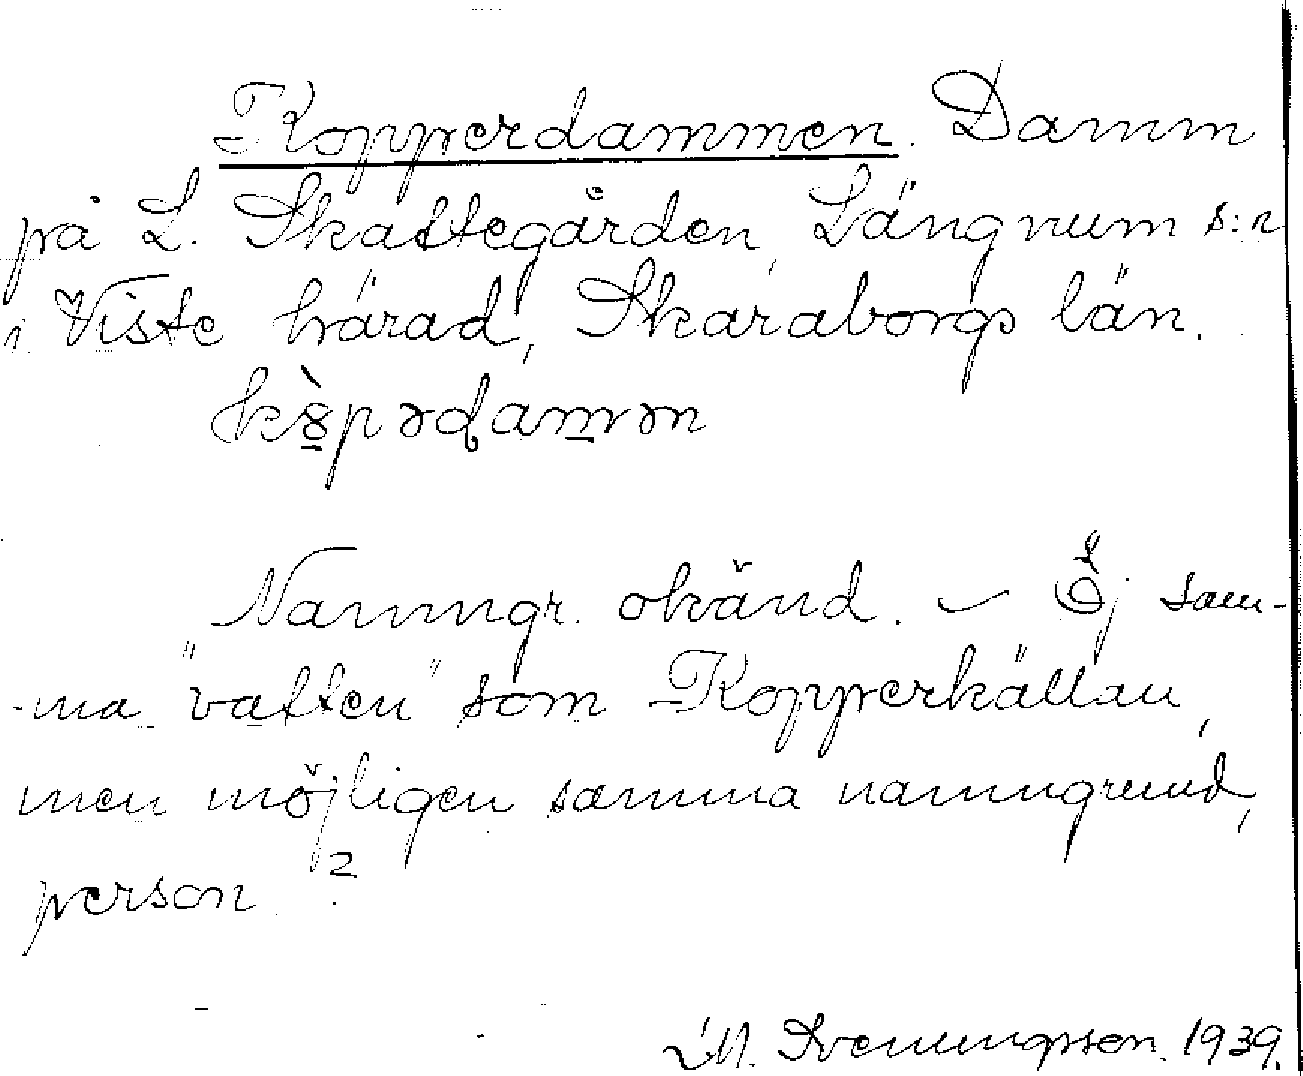 Kopperdammen. Damm
på L. Skattegården, Längnum s:n
i Viste härad, Skaraborgs län.
Namngr. okänd. – Ej sam-
-ma "vatten" som Kopperkällan,
men möjligen samma namngrund,
person?
M. Svenungsson. 1939.